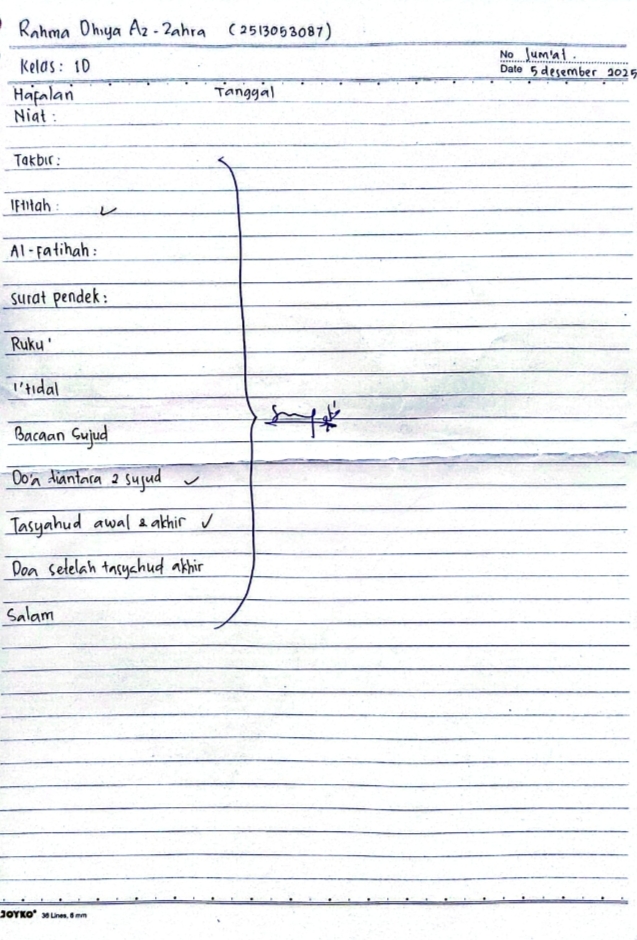 Rahma Dhiya Az-Zahra (2513053087)
Kelas: 1D
No Jum'at.
Date 5 desember 2025
Hafalan Tanggal
Niat:
Takbir:
Iftitah: ✓
Al-Fatihah:
surat pendek:
Ruku'
I'tidal
Bacaan Sujud
Do'a diantara 2 sujud ✓
Tasyahud awal & akhir ✓
Doa setelah tasyahud akhir
Salam
JOYKO® 36 Lines, 8 mm